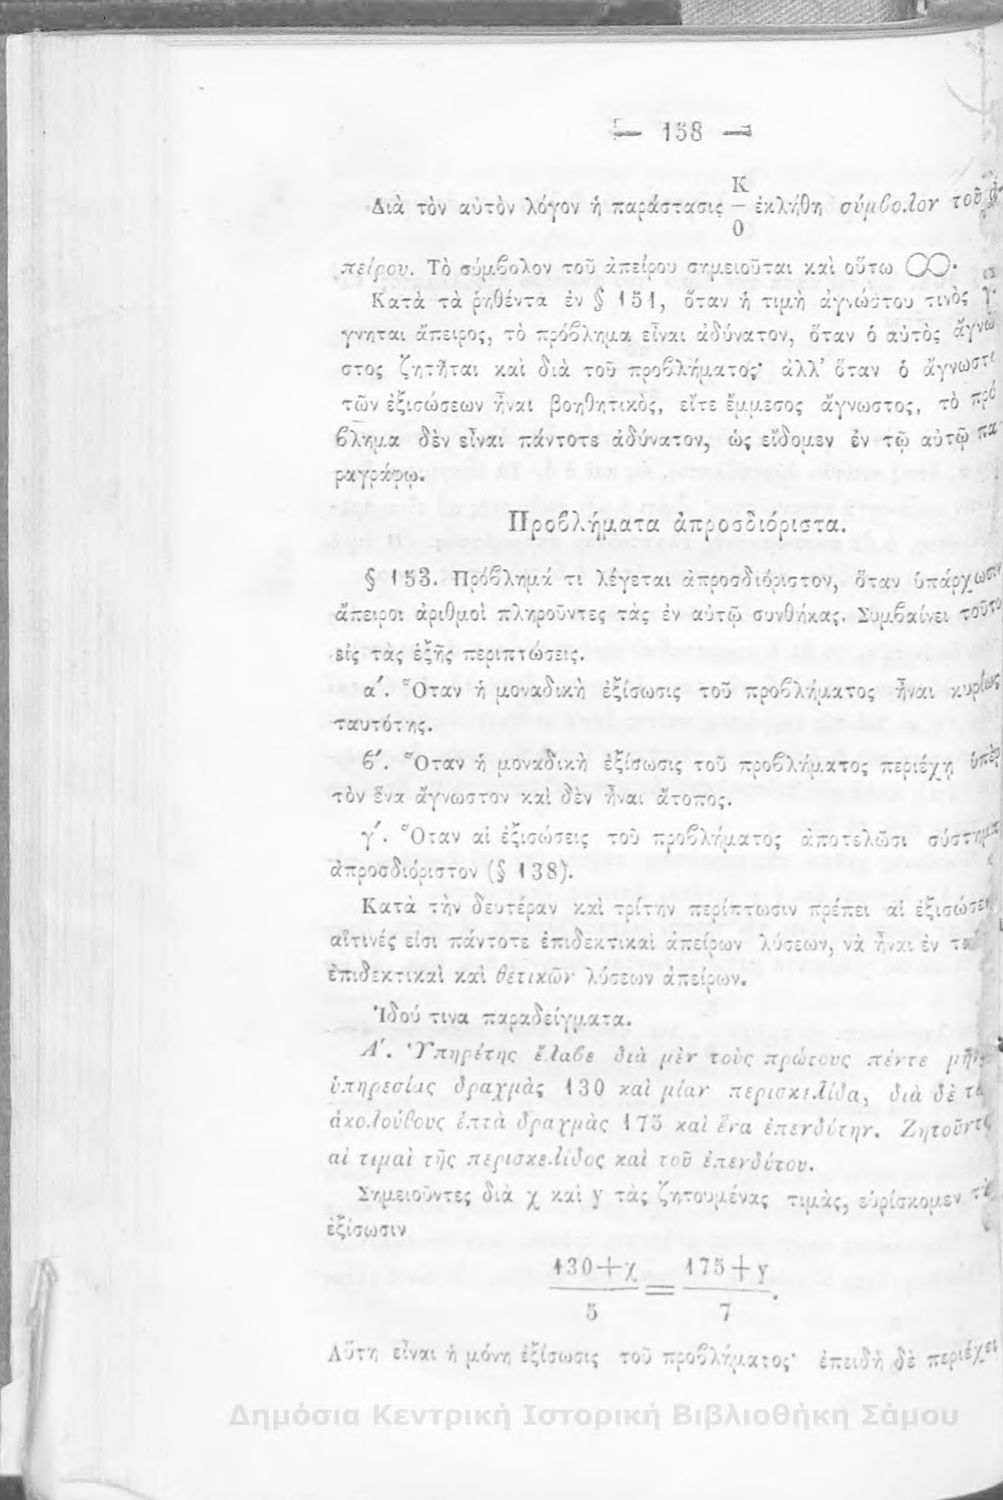 — 158 —
Διὰ τὸν αὐτὸν λόγον ἡ παράστασις K/0 ἐκλήθη σύμβολον τοῦ ἀ-
πείρου. Τὸ σύμβολον τοῦ ἀπείρου σημειοῦται καὶ οὕτω ∞.
Κατὰ τὰ ῥηθέντα ἐν § 151, ὅταν ἡ τιμὴ ἀγνώστου τινὸς γί-
γνηται ἄπειρος, τὸ πρόβλημα εἶναι ἀδύνατον, ὅταν ὁ αὐτὸς ἄγνω-
στος ζητῆται καὶ διὰ τοῦ προβλήματος· ἀλλ' ὅταν ὁ ἄγνωστος
τῶν ἐξισώσεων ἦναι βοηθητικὸς, εἴτε ἔμμεσος ἄγνωστος, τὸ πρό-
βλημα δὲν εἶναι πάντοτε ἀδύνατον, ὡς εἴδομεν ἐν τῷ αὐτῷ πα-
ραγράφῳ.
Προβλήματα ἀπροσδιόριστα.
§ 153. Πρόβλημά τι λέγεται ἀπροσδιόριστον, ὅταν ὑπάρχωσιν
ἄπειροι ἀριθμοὶ πληροῦντες τὰς ἐν αὐτῷ συνθήκας. Συμβαίνει τοῦτο
εἰς τὰς ἑξῆς περιπτώσεις.
α΄. Ὅταν ἡ μοναδικὴ ἐξίσωσις τοῦ προβλήματος ἦναι κυρίως
ταυτότης.
β΄. Ὅταν ἡ μοναδικὴ ἐξίσωσις τοῦ προβλήματος περιέχη ὑπὲρ
τὸν ἕνα ἄγνωστον καὶ δὲν ἦναι ἄτοπος.
γ΄. Ὅταν αἱ ἐξισώσεις τοῦ προβλήματος ἀποτελῶσι σύστημα
ἀπροσδιόριστον (§ 138).
Κατὰ τὴν δευτέραν καὶ τρίτην περίπτωσιν πρέπει αἱ ἐξισώσεις
αἵτινές εἰσι πάντοτε ἐπιδεκτικαὶ ἀπείρων λύσεων, νὰ ἦναι ἐν
ἐπιδεκτικαὶ καὶ θετικῶν λύσεων ἀπείρων.
Ἰδού τινα παραδείγματα.
Α΄. Ὑπηρέτης ἔλαβε διὰ μὲν τοὺς πρώτους πέντε
ὑπηρεσίας δραχμὰς 130 καὶ μίαν περισκελίδα, διὰ δὲ
ἀκολούθους ἑπτὰ δραχμὰς 175 καὶ ἕνα ἐπενδύτην. Ζητοῦνται
αἱ τιμαὶ τῆς περισκελίδος καὶ τοῦ ἐπενδύτου.
Σημειοῦντες διὰ χ καὶ y τὰς ζητουμένας τιμὰς, εὑρίσκομεν
ἐξίσωσιν
130+χ   175+y
——— = ———.
5   7
Αὕτη εἶναι ἡ μόνη ἐξίσωσις τοῦ προβλήματος· ἐπειδὴ δὲ περιέχει
Δημόσια Κεντρική Ιστορική Βιβλιοθήκη Σάμου